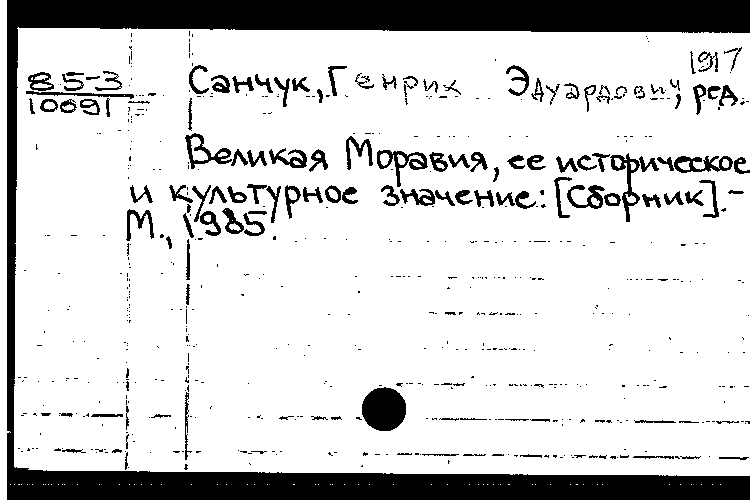 1917
85-3 Санчук, Генрих Эдуардович, ред.
10091
Великая Моравия, ее историческое
и культурное значение: [Сборник]. -
М., 1985.